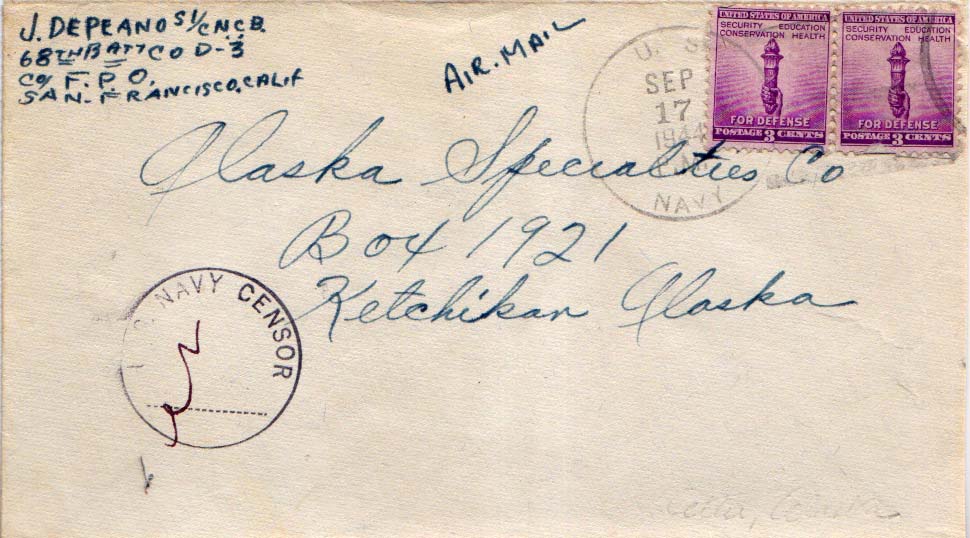 J. DEPEANO S1/C N.C.B.
68TH BATT CO D-3
C/O F.P.O.
SAN. FRANCISCO, CALIF
AIR. MAIL
U. S.
SEP
17
1944
NAVY
UNITED STATES OF AMERICA
SECURITY EDUCATION
CONSERVATION HEALTH
FOR DEFENSE
POSTAGE 3 CENTS
UNITED STATES OF AMERICA
SECURITY EDUCATION
CONSERVATION HEALTH
FOR DEFENSE
POSTAGE 3 CENTS
Alaska Specialties Co
Box 1921
Ketchikan Alaska
NAVY CENSOR